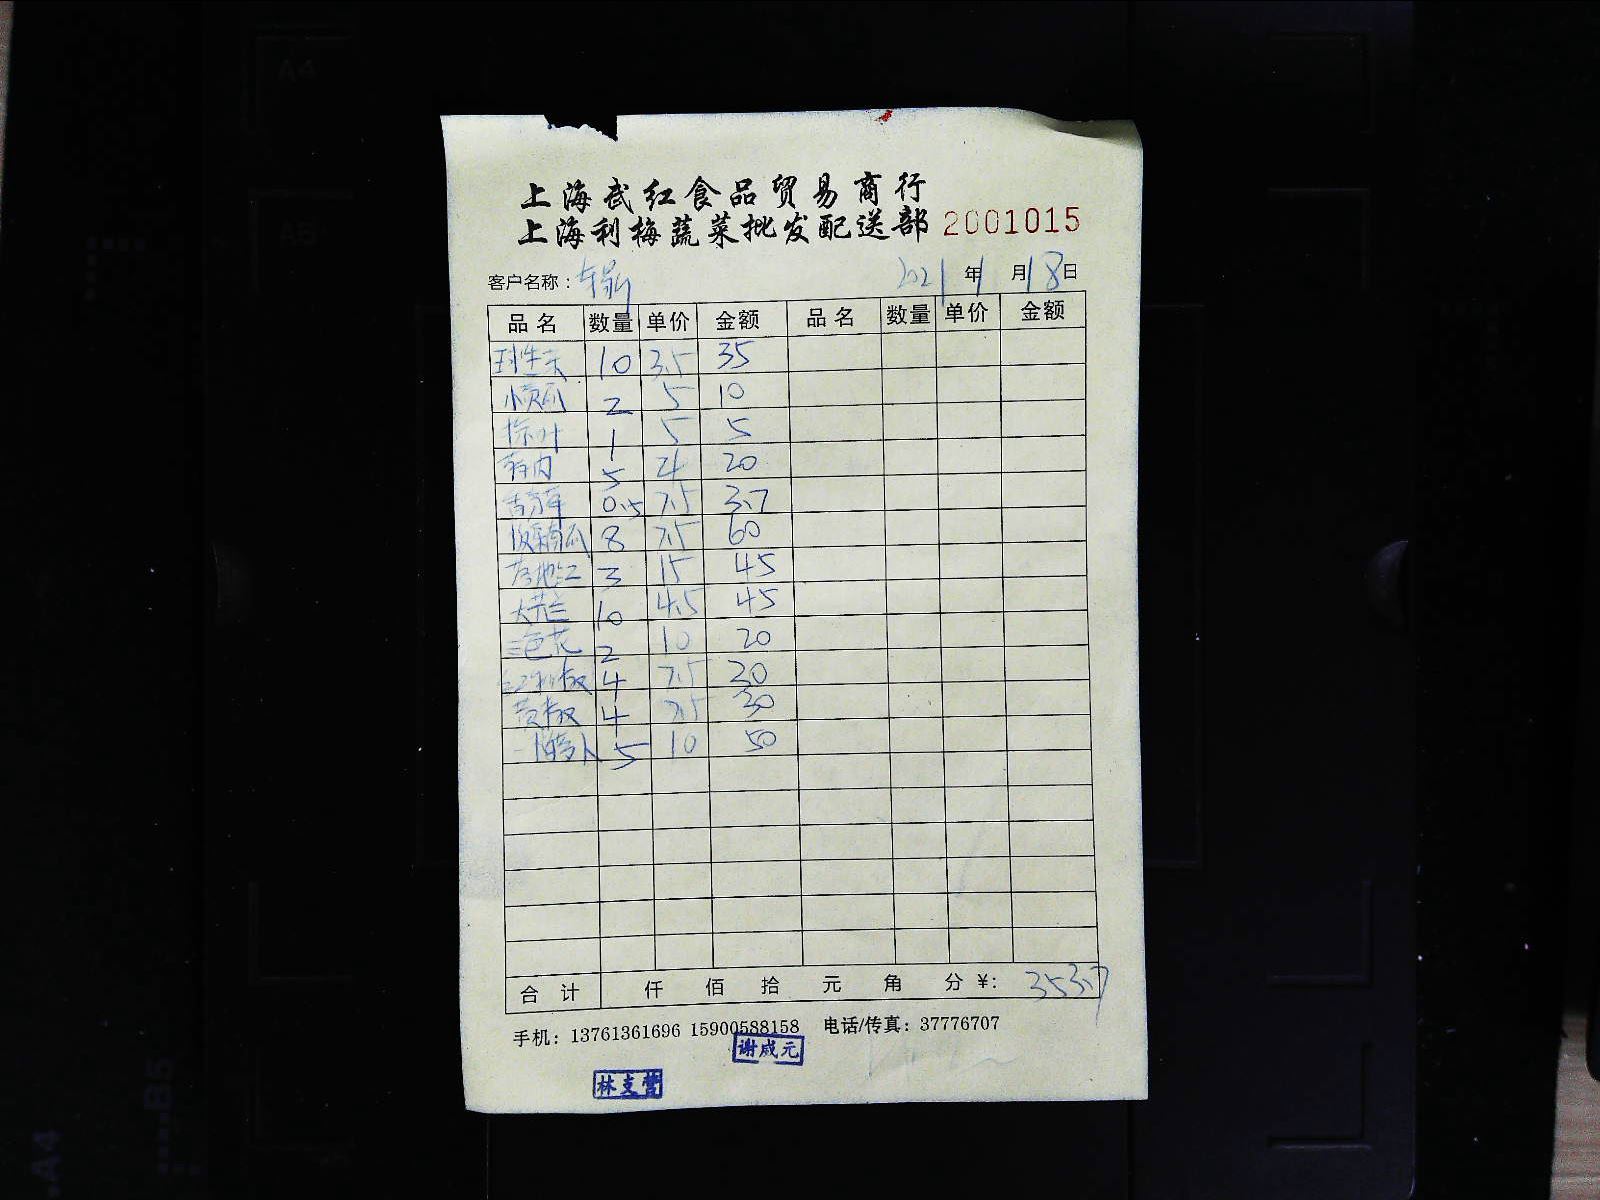 上海武红食品贸易商行
上海利梅蔬菜批发配送部 2001015
客户名称： 2021年1月18日
品名 数量 单价 金额 品名 数量 单价 金额
球生菜 10 3.5 35
小黄瓜 2 5 10
1 5 5
5 4 20
0.5 7.5 3.7
板栗南瓜 8 7.5 60
3 15 45
大芥兰 10 4.5 45
三色花 2 10 20
红椒 4 7.5 30
黄椒 4 7.5 30
5 10 50
合计 仟 佰 拾 元 角 分 ¥: 353.7
手机：13761361696 15900588158 电话/传真：37776707
谢成元
林支营
A4
A5
B5
A4